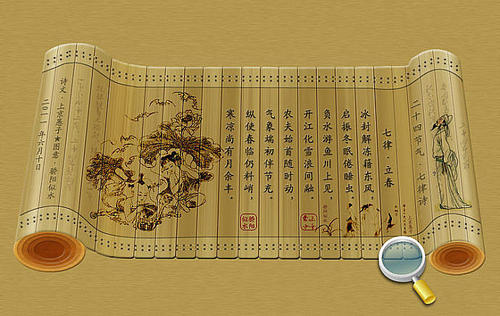 二十四节气·七律诗
七律·立春
冰封解冻藉东风
启振冬眠倦睡虫
负水游鱼川上见
开江化雪浪间融。
农夫始首随时动，
气象端初伴节充。
纵使春临仍料峭，
寒凉尚有月余丰。
诗文·上京愚子★图意·骄阳似水
二0一一年六月十日
骄阳
似水